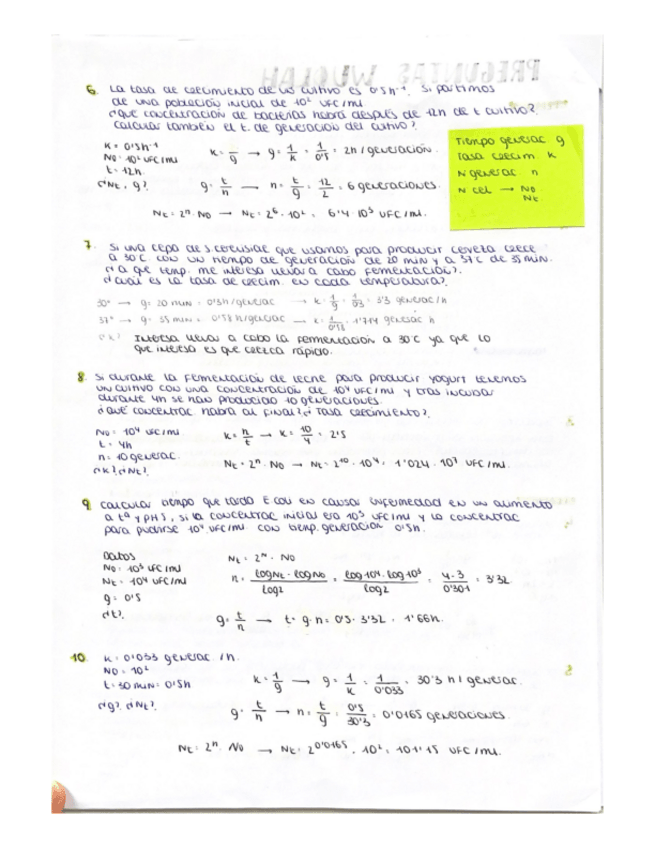 PREGUNTAS WUOLAH
6. La tasa de crecimiento de un cultivo es 0'5h⁻¹. Si partimos
de una población inicial de 10² UFC/ml
¿qué concentración de bacterias habrá después de 12h de t cultivo?
calcular también el t. de generación del cultivo?
K = 0'5h⁻¹
N0 = 10² UFC/ml
t = 12h
¿Nt, g?
K = 1/g → g = 1/K = 1/0'5 = 2h/generación.
g = t/n → n = t/g = 12/2 = 6 generaciones.
Nt = 2ⁿ · N0 → Nt = 2⁶ · 10² = 6'4 · 10³ UFC/ml.
Tiempo generac g
Tasa crecim. K
N generac n
N cel → N0
Nt
7. Si una cepa de S. cerevisiae que usamos para producir cerveza crece
a 30°C con un tiempo de generación de 20 min y a 37°C de 35 min.
¿a que temp. me interesa llevar a cabo fermentación?
¿cual es la tasa de crecim. en cada temperatura?
30° → g = 20 min = 0'3h/generac → K = 1/g = 1/0'3 = 3'3 generac/h
37° → g = 35 min = 0'58h/generac → K = 1/0'58 = 1'714 generac h
Interesa llevar a cabo la fermentación a 30°C ya que lo
que interesa es que crezca rápido.
8. Si durante la fermentación de leche para producir yogurt tenemos
un cultivo con una concentración de 10⁴ UFC/ml y tras incubar
durante 4h se han producido 10 generaciones.
¿qué concentrac habrá al final? ¿Tasa crecimiento?
N0 = 10⁴ UFC/ml
t = 4h
n = 10 generac.
¿K? ¿Nt?
K = n/t → K = 10/4 = 2'5
Nt = 2ⁿ · N0 → Nt = 2¹⁰ · 10⁴ = 1'024 · 10⁷ UFC/ml.
9. calcular tiempo que tarda E coli en causar enfermedad en un alimento
a tª y pH 5, si la concentrac inicial era 10³ UFC/ml y la concentrac
para pudrirse 10⁴ UFC/ml. con temp. generación 0'5h.
Datos
N0 = 10³ UFC/ml
Nt = 10⁴ UFC/ml
g = 0'5
¿t?
Nt = 2ⁿ · N0
n = logNt - logN0 / log2 = log10⁴ - log10³ / log2 = 4 - 3 / 0'301 = 3'32
g = t/n → t = g · n = 0'5 · 3'32 = 1'66h.
10. K = 0'033 generac./h.
N0 = 10²
t = 30 min = 0'5h
¿g? ¿Nt?
K = 1/g → g = 1/K = 1/0'033 = 30'3 h/generac.
g = t/n → n = t/g = 0'5/30'3 = 0'0165 generaciones.
Nt = 2ⁿ · N0 → Nt = 2^0'0165 · 10² = 101'15 UFC/ml.